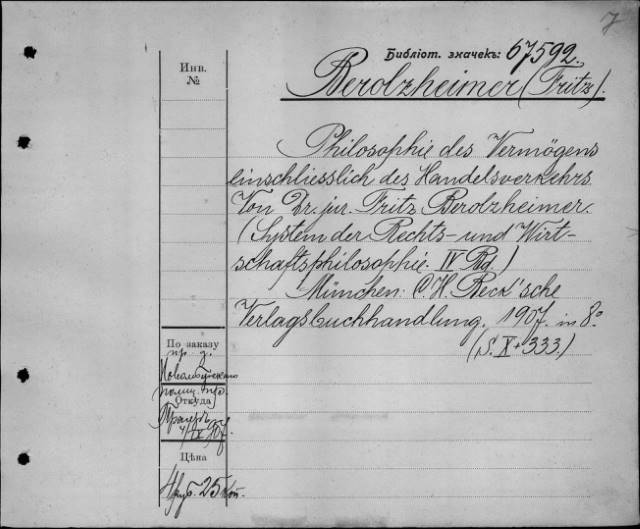 7
Библіот. значекъ: 67592.
Инв.
№
Berolzheimer (Fritz).
Philosophie des Vermögens
einschliesslich des Handelsverkehrs.
Von Dr. jur. Fritz Berolzheimer.
(System der Rechts- und Wirt-
schaftsphilosophie. IV Bd.)
München: C. H. Beck'sche
Verlagsbuchhandlung. 1907. in 8º
(S. X + 333.)
По заказу
пр. д.
Откуда
IX 07.
Цѣна
4 руб. 25 коп.